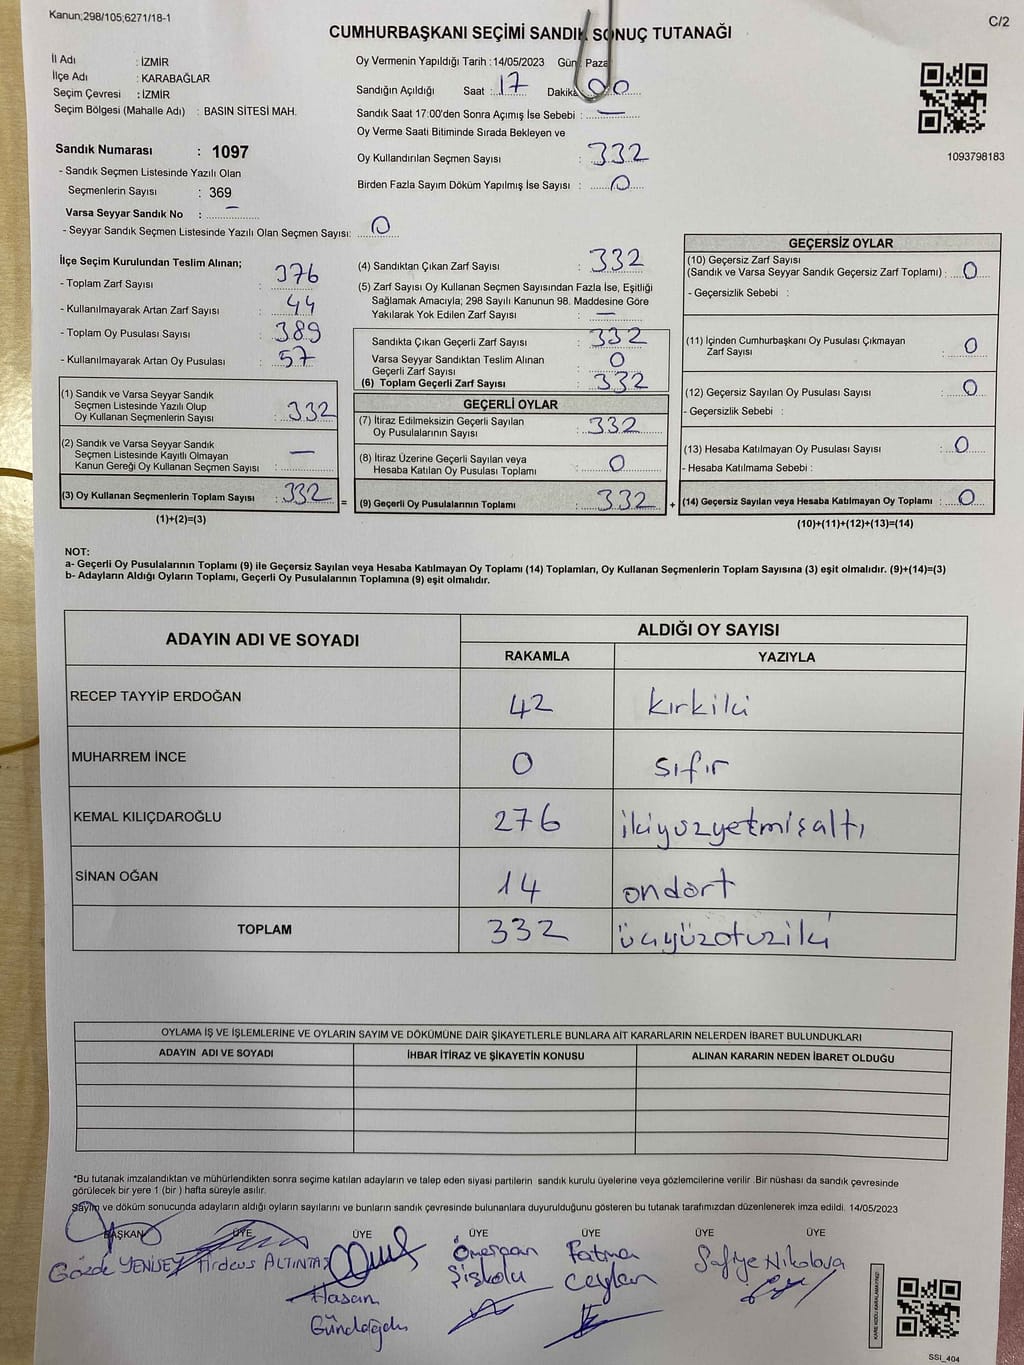 Kanun;298/105;6271/18-1
C/2
CUMHURBAŞKANI SEÇİMİ SANDIK SONUÇ TUTANAĞI
İl Adı : İZMİR
İlçe Adı : KARABAĞLAR
Seçim Çevresi : İZMİR
Seçim Bölgesi (Mahalle Adı) : BASIN SİTESİ MAH.
Sandık Numarası : 1097
- Sandık Seçmen Listesinde Yazılı Olan
Seçmenlerin Sayısı : 369
Varsa Seyyar Sandık No : –
- Seyyar Sandık Seçmen Listesinde Yazılı Olan Seçmen Sayısı: 0
Oy Vermenin Yapıldığı Tarih :14/05/2023 Gün: Pazar
Sandığın Açıldığı Saat : 17 Dakika 00
Sandık Saat 17:00'den Sonra Açımış İse Sebebi : —
Oy Verme Saati Bitiminde Sırada Bekleyen ve
Oy Kullandırılan Seçmen Sayısı : 332
Birden Fazla Sayım Döküm Yapılmış İse Sayısı : 0
1093798183
İlçe Seçim Kurulundan Teslim Alınan;
- Toplam Zarf Sayısı : 376
- Kullanılmayarak Artan Zarf Sayısı : 44
- Toplam Oy Pusulası Sayısı : 389
- Kullanılmayarak Artan Oy Pusulası : 57
(1) Sandık ve Varsa Seyyar Sandık
Seçmen Listesinde Yazılı Olup
Oy Kullanan Seçmenlerin Sayısı : 332
(2) Sandık ve Varsa Seyyar Sandık
Seçmen Listesinde Kayıtlı Olmayan
Kanun Gereği Oy Kullanan Seçmen Sayısı : —
(3) Oy Kullanan Seçmenlerin Toplam Sayısı : 332 =
(1)+(2)=(3)
(4) Sandıktan Çıkan Zarf Sayısı : 332
(5) Zarf Sayısı Oy Kullanan Seçmen Sayısından Fazla İse, Eşitliği
Sağlamak Amacıyla; 298 Sayılı Kanunun 98. Maddesine Göre
Yakılarak Yok Edilen Zarf Sayısı : —
Sandıkta Çıkan Geçerli Zarf Sayısı : 332
Varsa Seyyar Sandıktan Teslim Alınan
Geçerli Zarf Sayısı : 0
(6) Toplam Geçerli Zarf Sayısı : 332
GEÇERLİ OYLAR
(7) İtiraz Edilmeksizin Geçerli Sayılan
Oy Pusulalarının Sayısı : 332
(8) İtiraz Üzerine Geçerli Sayılan veya
Hesaba Katılan Oy Pusulası Toplamı : 0
(9) Geçerli Oy Pusulalarının Toplamı : 332 +
GEÇERSİZ OYLAR
(10) Geçersiz Zarf Sayısı
(Sandık ve Varsa Seyyar Sandık Geçersiz Zarf Toplamı) : 0
- Geçersizlik Sebebi :
(11) İçinden Cumhurbaşkanı Oy Pusulası Çıkmayan
Zarf Sayısı : 0
(12) Geçersiz Sayılan Oy Pusulası Sayısı : 0
- Geçersizlik Sebebi :
(13) Hesaba Katılmayan Oy Pusulası Sayısı : 0
- Hesaba Katılmama Sebebi :
(14) Geçersiz Sayılan veya Hesaba Katılmayan Oy Toplamı : 0
(10)+(11)+(12)+(13)=(14)
NOT:
a- Geçerli Oy Pusulalarının Toplamı (9) ile Geçersiz Sayılan veya Hesaba Katılmayan Oy Toplamı (14) Toplamları, Oy Kullanan Seçmenlerin Toplam Sayısına (3) eşit olmalıdır. (9)+(14)=(3)
b- Adayların Aldığı Oyların Toplamı, Geçerli Oy Pusulalarının Toplamına (9) eşit olmalıdır.
ADAYIN ADI VE SOYADI ALDIĞI OY SAYISI
RAKAMLA YAZIYLA
RECEP TAYYİP ERDOĞAN 42 kırkiki
MUHARREM İNCE 0 sıfır
KEMAL KILIÇDAROĞLU 276 ikiyüzyetmişaltı
SİNAN OĞAN 14 ondört
TOPLAM 332 üçyüzotuziki
OYLAMA İŞ VE İŞLEMLERİNE VE OYLARIN SAYIM VE DÖKÜMÜNE DAİR ŞİKAYETLERLE BUNLARA AİT KARARLARIN NELERDEN İBARET BULUNDUKLARI
ADAYIN ADI VE SOYADI İHBAR İTİRAZ VE ŞİKAYETİN KONUSU ALINAN KARARIN NEDEN İBARET OLDUĞU
*Bu tutanak imzalandıktan ve mühürlendikten sonra seçime katılan adayların ve talep eden siyasi partilerin sandık kurulu üyelerine veya gözlemcilerine verilir .Bir nüshası da sandık çevresinde
görülecek bir yere 1 (bir ) hafta süreyle asılır.
Sayım ve döküm sonucunda adayların aldığı oyların sayılarını ve bunların sandık çevresinde bulunanlara duyurulduğunu gösteren bu tutanak tarafımızdan düzenlenerek imza edildi. 14/05/2023
BAŞKAN ÜYE ÜYE ÜYE ÜYE ÜYE ÜYE
Gözde YENİSEY Firdevs ALTINTAŞ
Hasan
Gündoğdu
Ömercan
Şişkolu
Fatma
Ceylan
Safiye Nikolova
KARE KODU KARALAMAYINIZ!
SSI_404